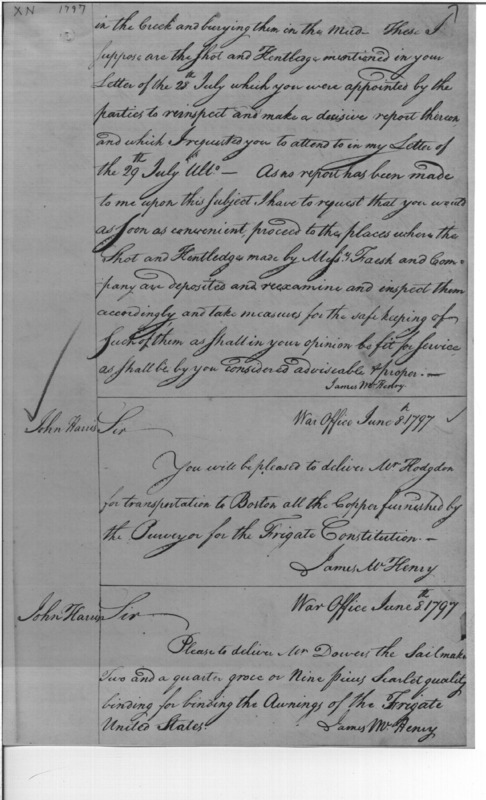 XN 1797 7
in the Creek and burying them in the Mud. These I
suppose are the Shot and Kentledge mentioned in your
Letter of the 28th July which you were appointed by the
parties to reinspect and make a decisive report thereon
and which I requested you to attend to in my Letter of
the 29th July Ulto — As no report has been made
to me upon this subject I have to request that you would
as soon as convenient, proceed to the places where the
Shot and Kentledge made by Messrs Faesh and Com=
pany are deposited and reexamine and inspect them
accordingly and take measures for the safe keeping of
Such of them as shall in your opinion be fit for service
as shall be by you considered adviseable & proper. —
James McHenry
John Harris
Sir War Office June 8th 1797
You will be pleased to deliver Mr Hodgdon
for transportation to Boston all the Copper furnished by
the Purveyor for the Frigate Constitution. —
James McHenry
John Harris
Sir War Office June 8th 1797
Please to deliver Mr Dowers the Sailmaker
Two and a quarter groce or Nine pieces Scarlet quality
binding for binding the Awnings of the Frigate
United States.
James McHenry